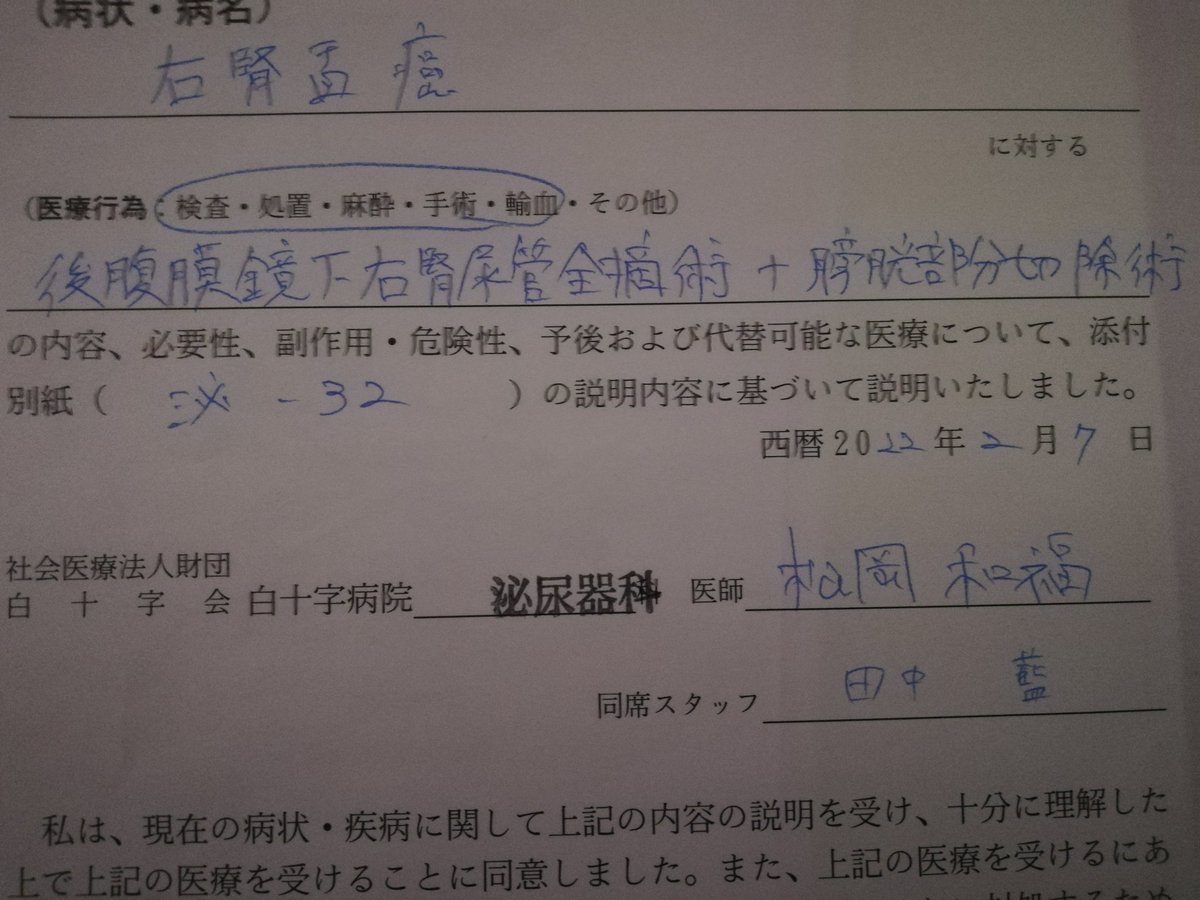 (病状・病名)
右腎盂癌
に対する
(医療行為：検査・処置・麻酔・手術・輸血・その他)
後腹膜鏡下右腎尿管全摘術+膀胱部分切除術
の内容、必要性、副作用・危険性、予後および代替可能な医療について、添付
別紙( 泌-32 )の説明内容に基づいて説明いたしました。
西暦2022年2月7日
社会医療法人財団
白十字会 白十字病院 泌尿器科 医師 松岡 和福
同席スタッフ 田中 藍
私は、現在の病状・疾病に関して上記の内容の説明を受け、十分に理解した
上で上記の医療を受けることに同意しました。また、上記の医療を受けるにあ